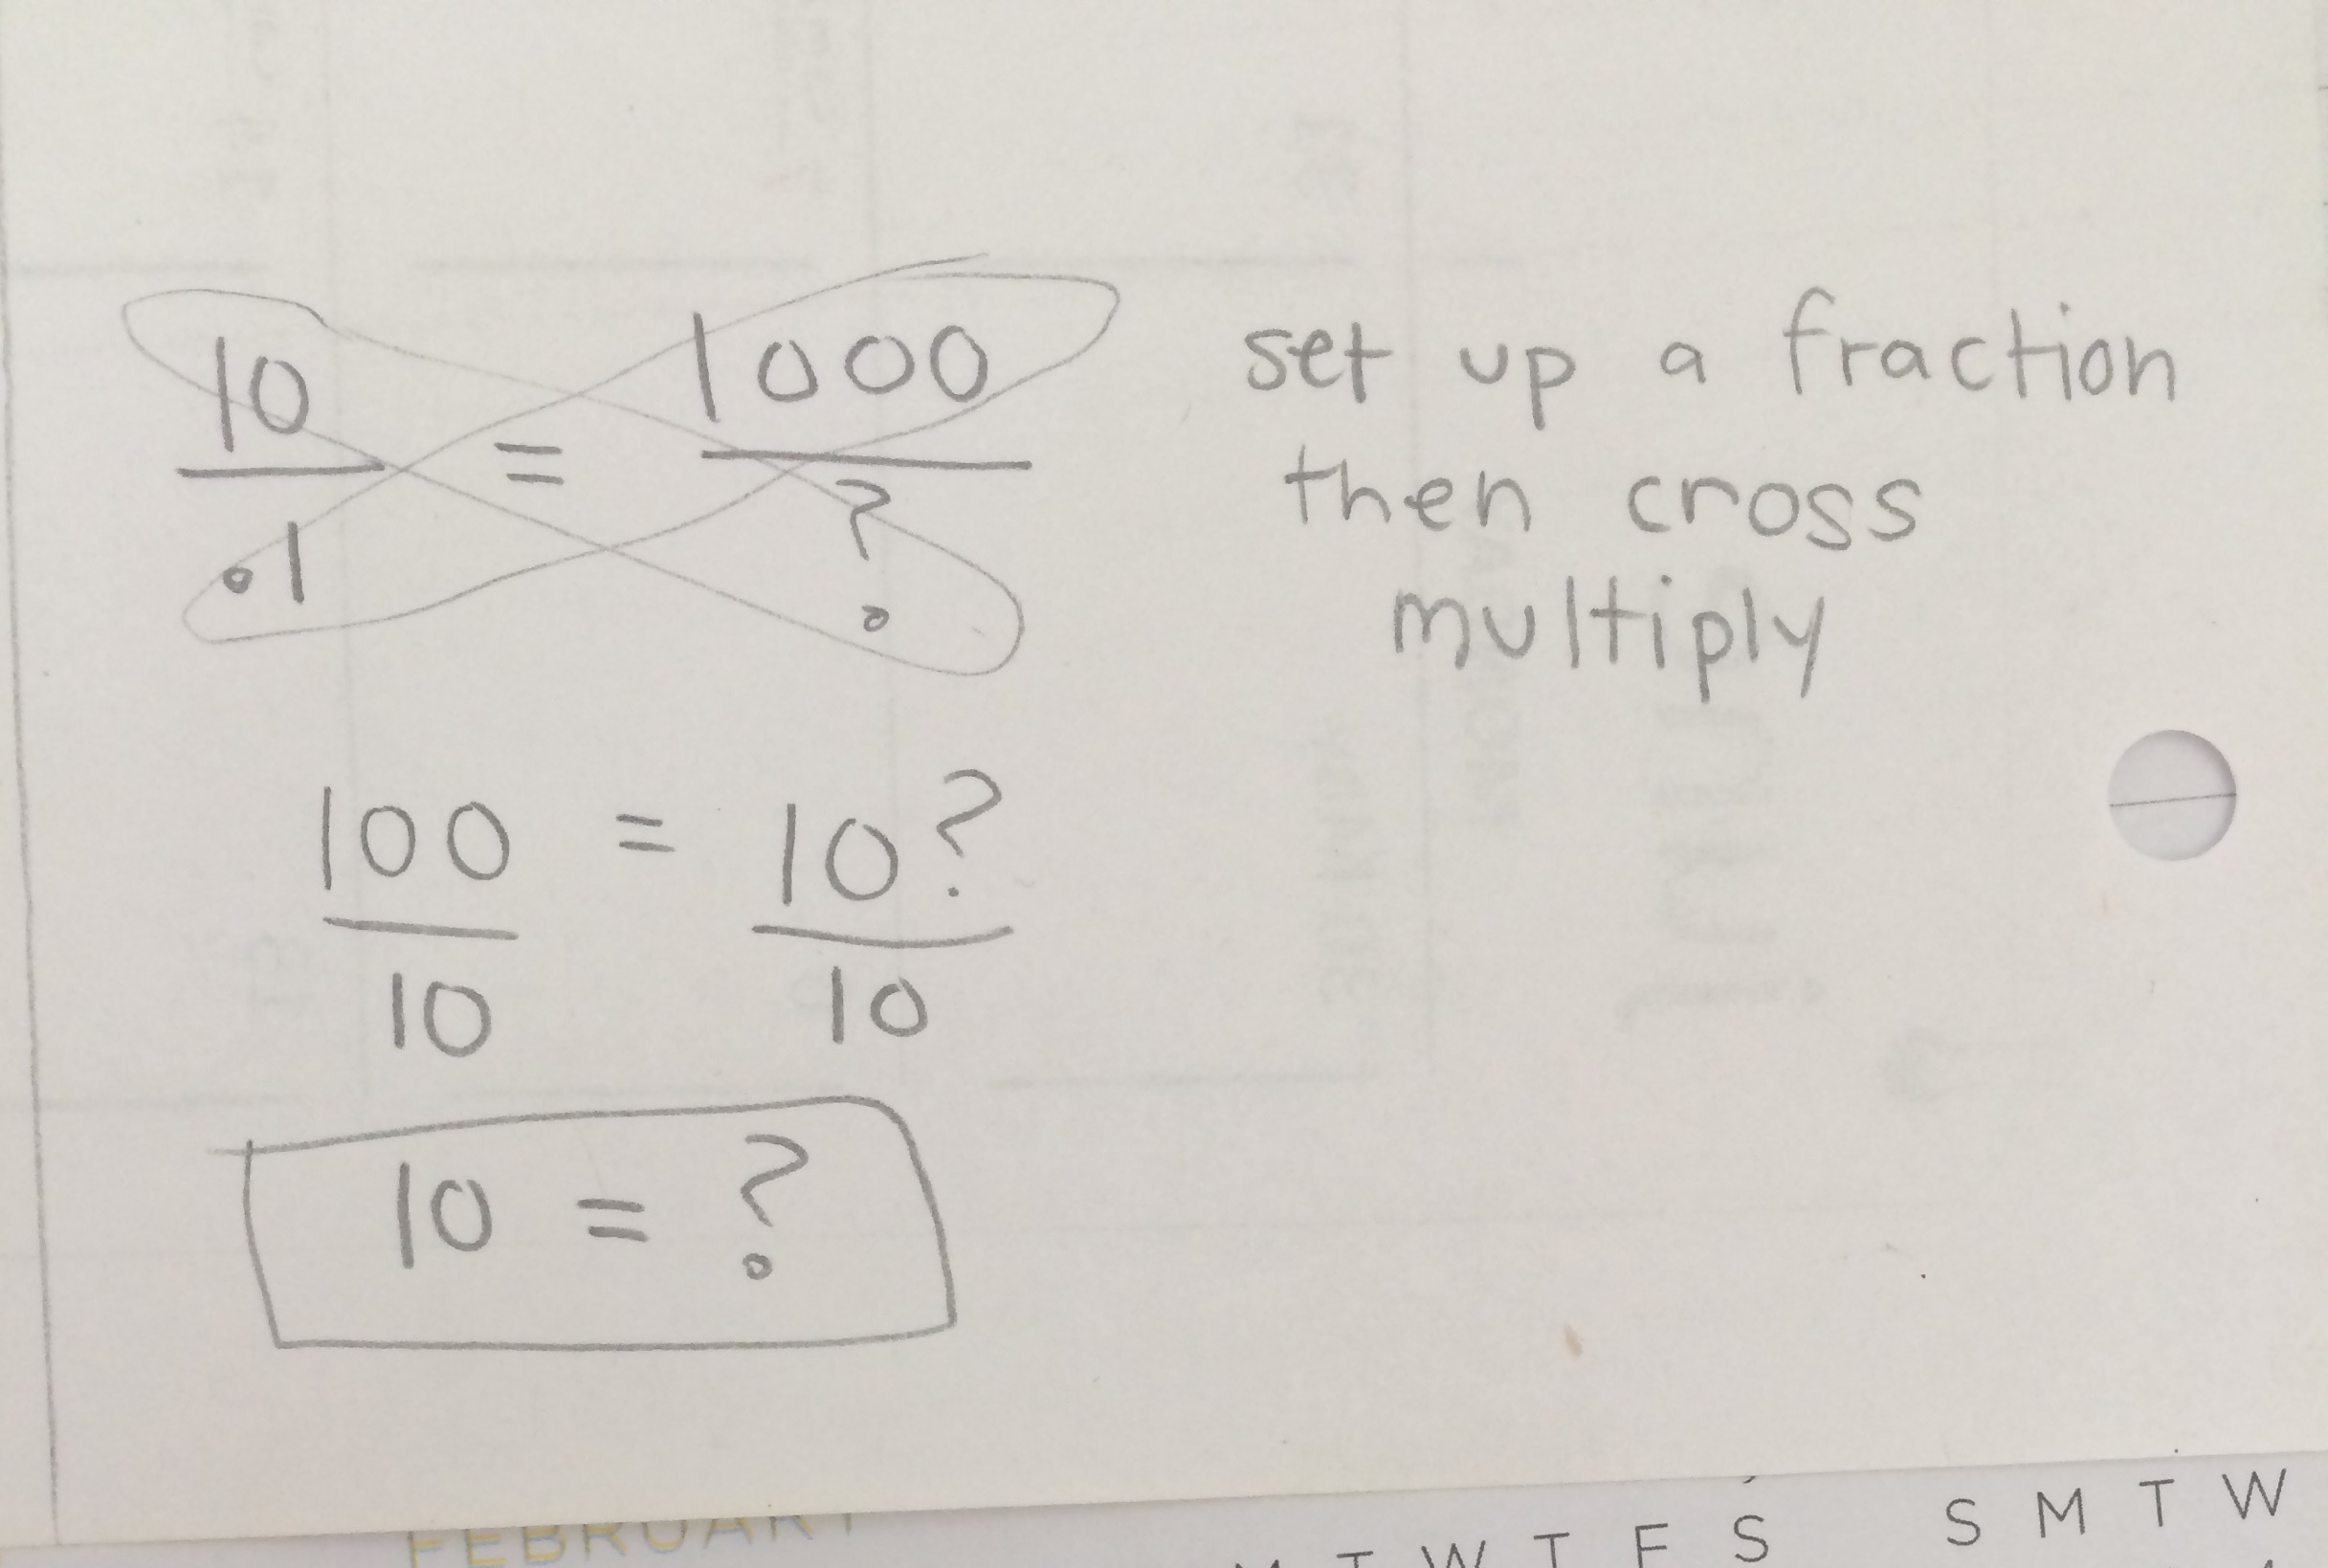 10 = 1000
.1 ?
set up a fraction
then cross
multiply
100 = 10?
10 10
10 = ?
FEBRUARY
M T W T F S
S M T W